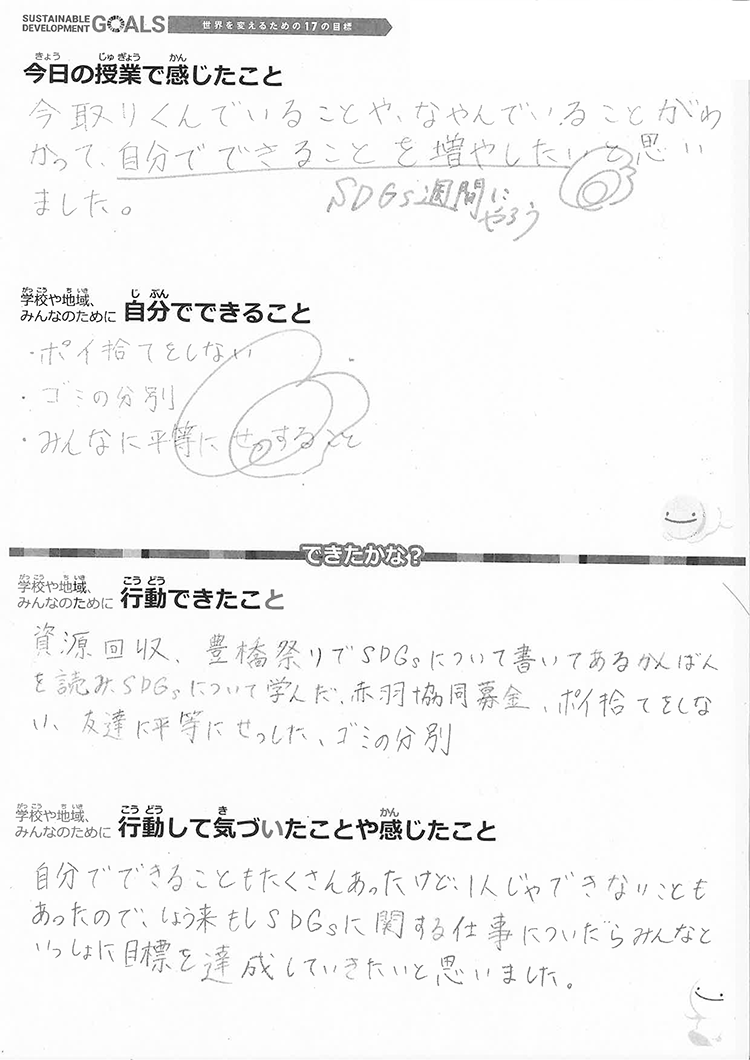 SUSTAINABLE DEVELOPMENT GOALS 世界を変えるための17の目標
今日の授業で感じたこと
今取りくんでいることや、なやんでいることがわ
かって、自分でできることを増やしたいと思い
ました。
SDGs週間に
やろう
学校や地域、
みんなのために 自分でできること
・ポイ捨てをしない
・ゴミの分別
・みんなに平等にせっすること
できたかな？
学校や地域、
みんなのために 行動できたこと
資源回収、豊橋祭りでSDGsについて書いてあるかんばん
を読みSDGsについて学んだ、赤羽協同募金、ポイ捨てをしな
い、友達に平等にせっした、ゴミの分別
学校や地域、
みんなのために 行動して気づいたことや感じたこと
自分でできることもたくさんあったけど、1人じゃできないことも
あったので、しょう来もしSDGsに関する仕事についだらみんなと
いっしょに目標を達成していきたいと思いました。